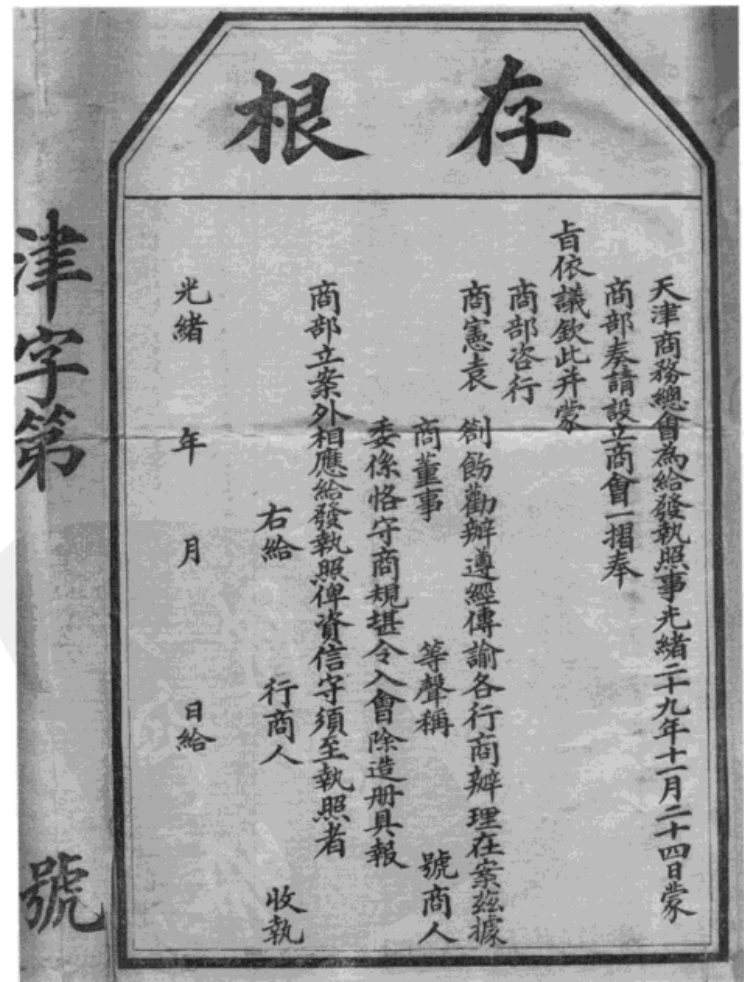 存根
天津商務總會為給發執照事光緒二十九年十一月二十四日蒙
商部奏請設立商會一摺奉
旨依議欽此并蒙
商部咨行
商憲袁 劄飭勸辦遵經傳諭各行商辦理在案茲據
商董事 等聲稱 號商人
委係恪守商規堪令入會除造册具報
商部立案外相應給發執照俾資信守須至執照者
右給 行商人 收執
光緒 年 月 日給
津字第 號